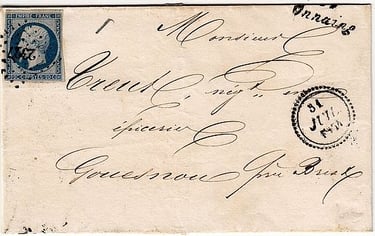 EMPIRE FRANC
Onnaing
Monsieur
Treut, négt en
épicerie
Gouesnou près Brest
31
JUIL